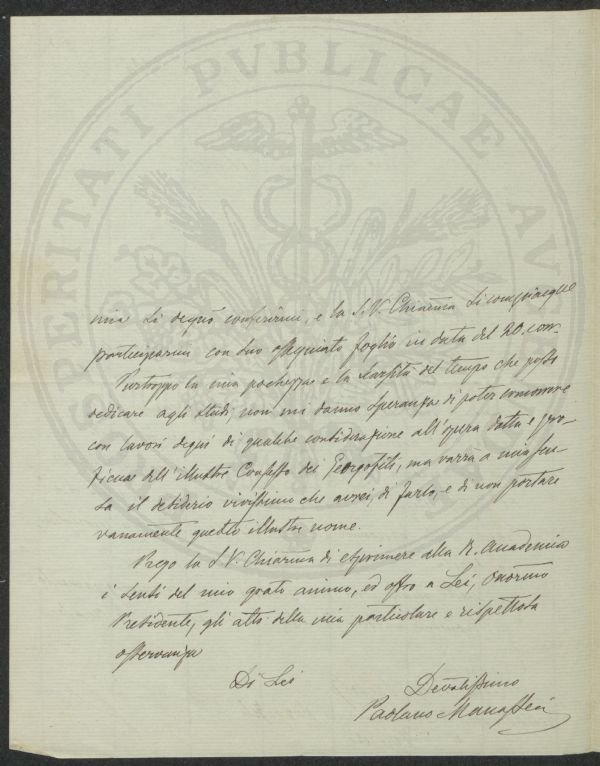 PROSPERITATI PVBLICAE AV
mia si degnò conferirmi, e la S. V. Chiarma si compiacque
parteciparmi con suo ossequiato foglio in data del 20. con.
Purtroppo la mia pochezza e la scarsità del tempo che posso
dedicare agli studi, non mi danno speranza di poter concorrere
con lavori degni di qualche considerazione all'opera dotta e pro-
ficua dell'illustre Consesso dei Georgofili, ma varrà a mia scu-
sa il desiderio vivissimo che avrei, di farlo, e di non portare
vanamente questo illustre nome.
Prego la S. V. Chiarma di esprimere alla R. Accademia
i sensi del mio grato animo, ed offro a Lei, Onormo
Presidente, gli atti della mia particolare e rispettosa
osservanza
Di Lei
Devotissimo
Paolano Manassei